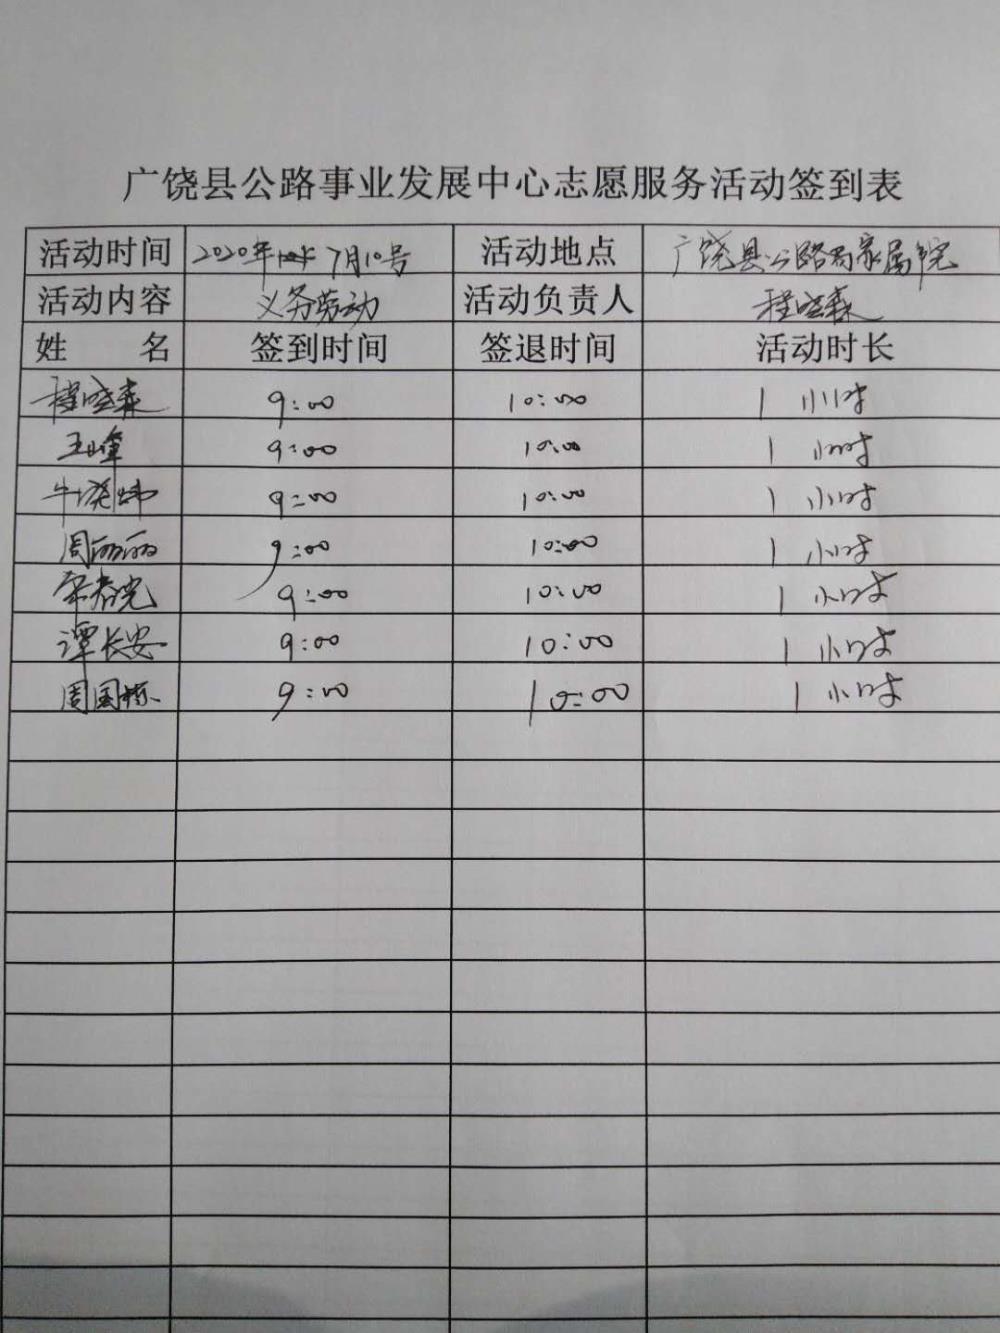 广饶县公路事业发展中心志愿服务活动签到表
活动时间 2020年 7月10号 活动地点 广饶县公路局家属院
活动内容 义务劳动 活动负责人 程晓森
姓 名 签到时间 签退时间 活动时长
程晓森 9:00 10:00 1 小时
王峰 9:00 10:00 1 小时
牛晓炜 9:00 10:00 1 小时
周丽丽 9:00 10:00 1 小时
9:00 10:00 1 小时
谭长安 9:00 10:00 1 小时
周国栋 9:00 10:00 1 小时